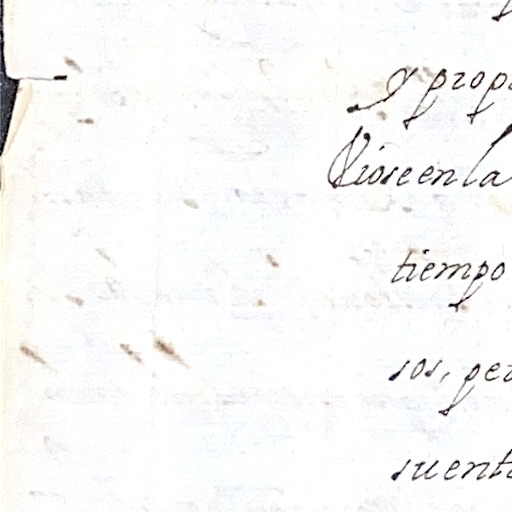 y prop
Viose en la
tiempo
sos, per
suent